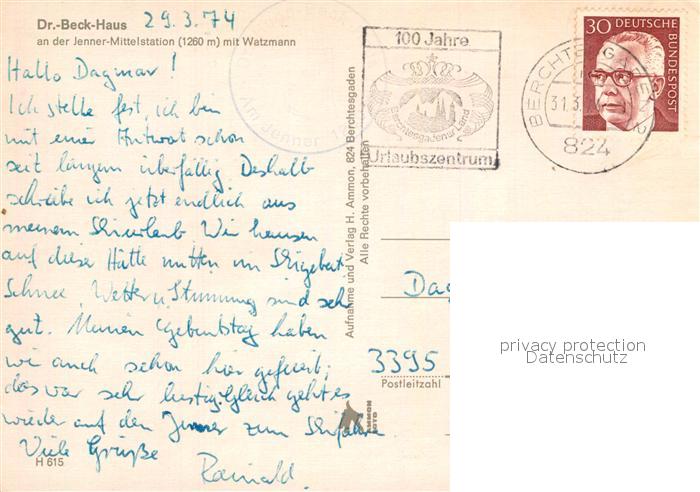 Dr.-Beck-Haus 29.3.74
an der Jenner-Mittelstation (1260 m) mit Watzmann
Hallo Dagmar!
Ich stelle fest, ich bin
mit einer Antwort schon
seit langem überfällig. Deshalb
schreibe ich jetzt endlich aus
meinem Skiurlaub. Wir hausen
auf dieser Hütte mitten im Skigebiet.
Schnee, Wetter u. Stimmung sind sehr
gut. Meinen Geburtstag haben
wir auch schon hier gefeiert;
das war sehr lustig. Gleich geht es
wieder auf den Jenner zum Skifahren
Viele Grüße
Rainald.
H 615
Am Jenner
Aufnahme und Verlag H. Ammon, 824 Berchtesgaden
Alle Rechte vorbehalten
100 Jahre
Berchtesgadener Land
Urlaubszentrum
BERCHTESGADEN 2
31.3.
824
30 DEUTSCHE
BUNDESPOST
Dag
3395
Postleitzahl
AMMON
FOTO
privacy protection
Datenschutz